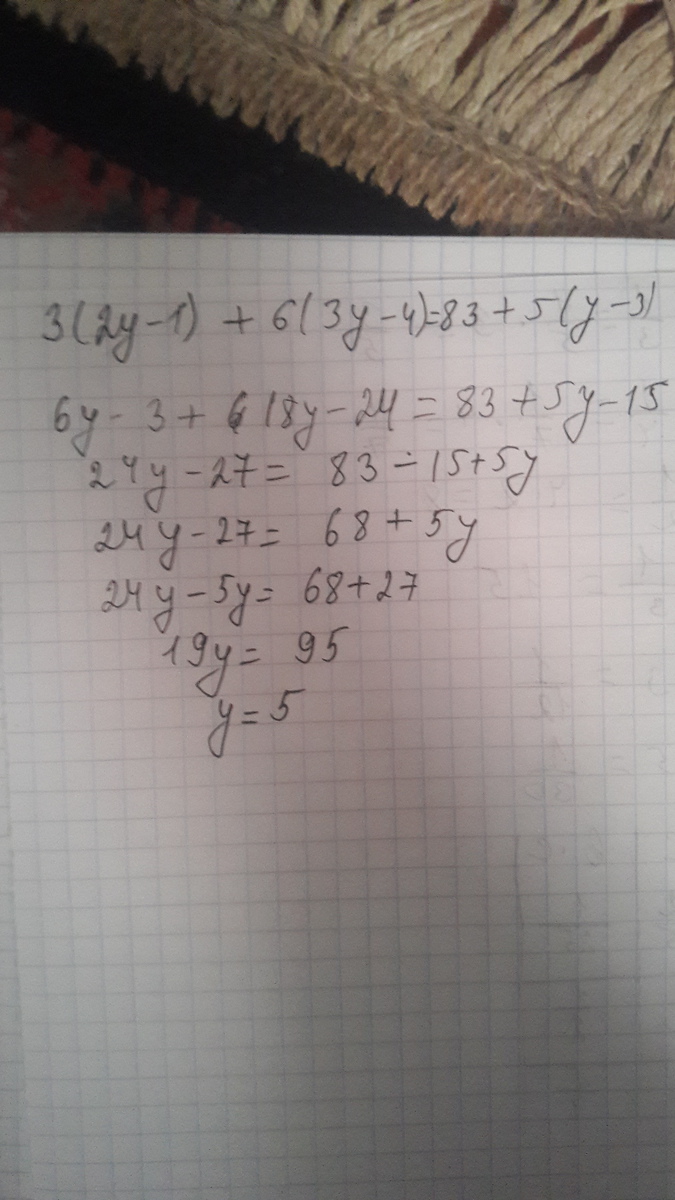 3(2y-1) + 6(3y-4)=83 + 5(y-3)
6y - 3 + 18y - 24 = 83 + 5y - 15
24y - 27 = 83 - 15 + 5y
24y - 27 = 68 + 5y
24y - 5y = 68 + 27
19y = 95
y = 5